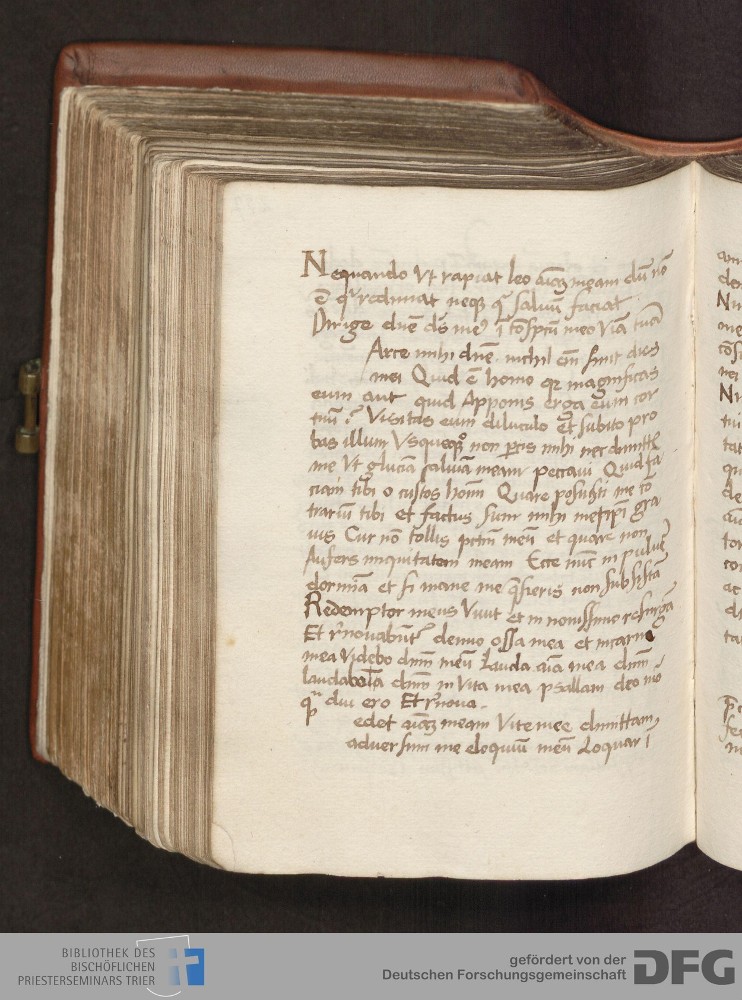 Nequando Vt rapiat leo aīaʒ meam dū nō
ē qͥ redimat neqʒ qͥ saluū faciat
Dirige dn̄e ds̄ meꝰ ī cōspectu meo viā tuā
Arce mihi dn̄e nichil em̄ sunt dies
mei Quid ē homo qꝛ magnificas
eum aut quid Apponis erga eum cor
tuū? Visitas eum diluculo et subito pro
bas illum Vsquequo non ꝑcis mihi nec dimittis
me Vt glutiā saliuā meam peccaui Quid fa
ciam tibi o custos hoīm Quare posuisti me cō
trariū tibi et factus sum mihi meipī gra
uis Cur nō tollis pctm̄ meū et quare non
Aufers iniquitatem meam Ecce nūc in puluē
dormiā et si mane me q̄sieris non subsistā
Redemptor meus Viuit et in nouissimo resurgā
Et rn̄ouabūtᷣ denuo ossa mea et in carne
mea Videbo dn̄m meū Lauda aīa mea dn̄m
laudabo dn̄m in Vita mea psallam deo meo
qͣdiu ero Et rn̄oua.
edet aīaʒ meam Vite mee dimittam
aduersum me eloquiū meū Loquar ī
am
de
Nu
me
nei
tui
tat
qu
de
tor
cor
ac
di
ta
BIBLIOTHEK DES
BISCHÖFLICHEN
PRIESTERSEMINARS TRIER
gefördert von der
Deutschen Forschungsgemeinschaft
DFG